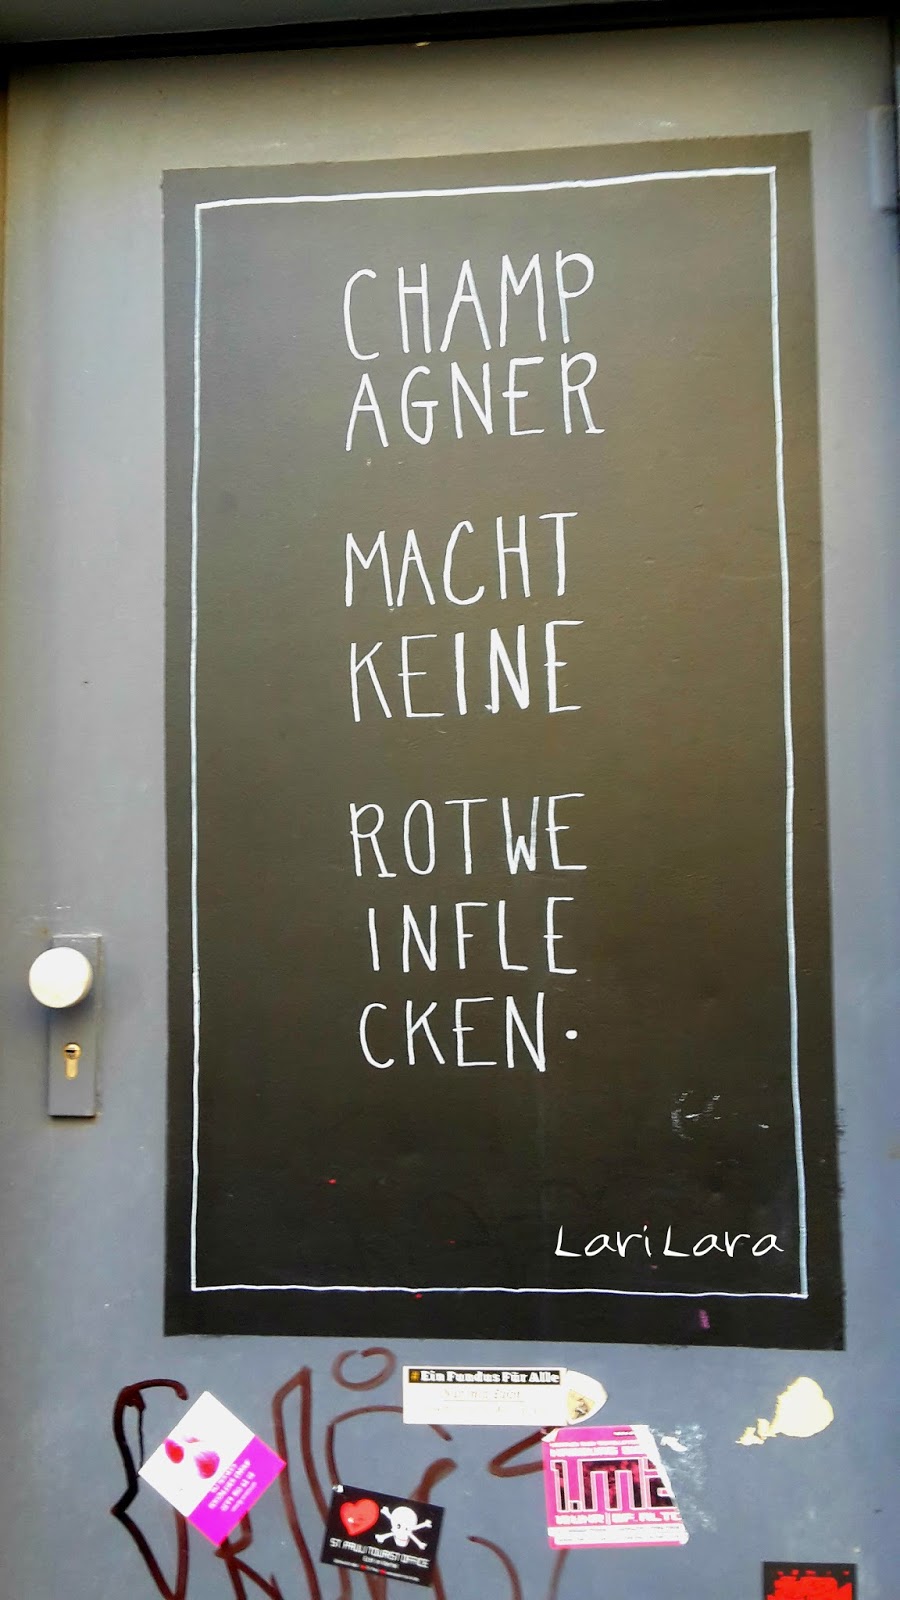 CHAMP
AGNER
MACHT
KEINE
ROTWE
INFLE
CKEN.
Lari Lara
Ein Fundus Für Alle
ST. PAULI TOURIST OFFICE
1.MA